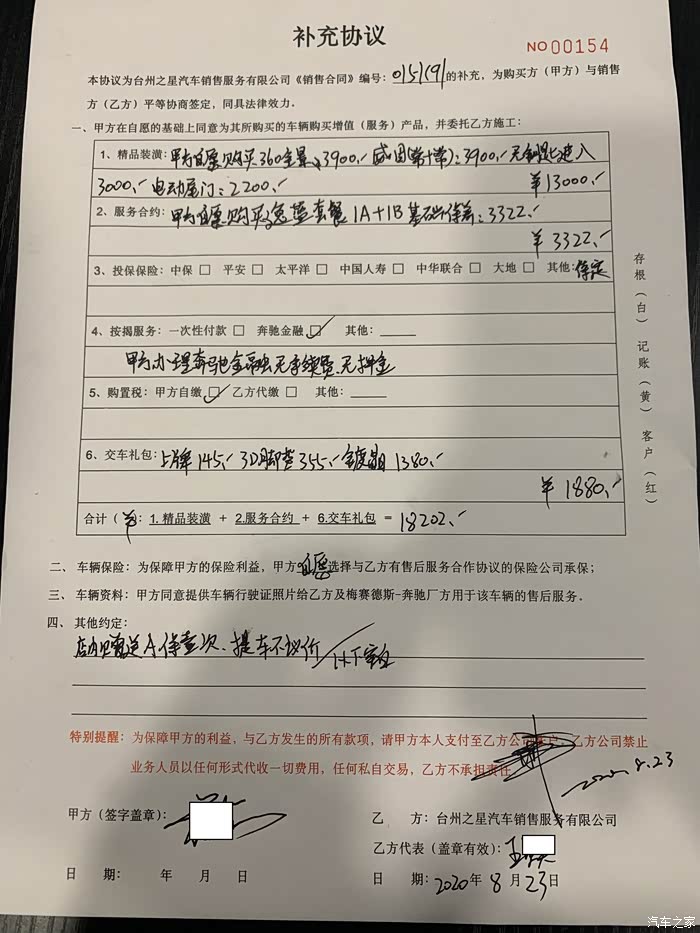 补充协议
NO 00154
本协议为台州之星汽车销售服务有限公司《销售合同》编号: 的补充，为购买方（甲方）与销售
方（乙方）平等协商签定，同具法律效力。
一、甲方在自愿的基础上同意为其所购买的车辆购买增值（服务）产品，并委托乙方施工：
1、精品装潢: 甲方自愿购买360全景: 3900.- 威固(第十带): 3900.- 无钥匙进入
3000.- 电动尾门: 2200.- ¥13000.-
2、服务合约: 甲方自愿购买 套餐 1A+1B 基础 : 3322.-
¥ 3322.-
3、投保保险: 中保 □ 平安 □ 太平洋 □ 中国人寿 □ 中华联合 □ 大地 □ 其他: 待定
4、按揭服务: 一次性付款 □ 奔驰金融 ☑ 其他:
甲方办理奔驰金融无手续费、无押金
5、购置税: 甲方自缴 ☑ 乙方代缴 □ 其他:
6、交车礼包: 上牌 145.- 3D脚垫 355.- 镀晶 1380.-
¥ 1880.-
合计（¥: 1.精品装潢 + 2.服务合约 + 6.交车礼包 = 18202.-
存根（白） 记账（黄） 客户（红）
二、车辆保险: 为保障甲方的保险利益，甲方自愿选择与乙方有售后服务合作协议的保险公司承保；
三、车辆资料: 甲方同意提供车辆行驶证照片给乙方及梅赛德斯-奔驰厂方用于该车辆的售后服务。
四、其他约定:
店内赠送A保壹次. 提车不议价/以下空白
特别提醒: 为保障甲方的利益，与乙方发生的所有款项，请甲方本人支付至乙方公司账户，乙方公司禁止
业务人员以任何形式代收一切费用，任何私自交易，乙方不承担责任。
2020.8.23
甲方（签字盖章）:
乙 方: 台州之星汽车销售服务有限公司
乙方代表（盖章有效）: 王
日 期: 年 月 日
日 期: 2020年 8 月 23日
汽车之家